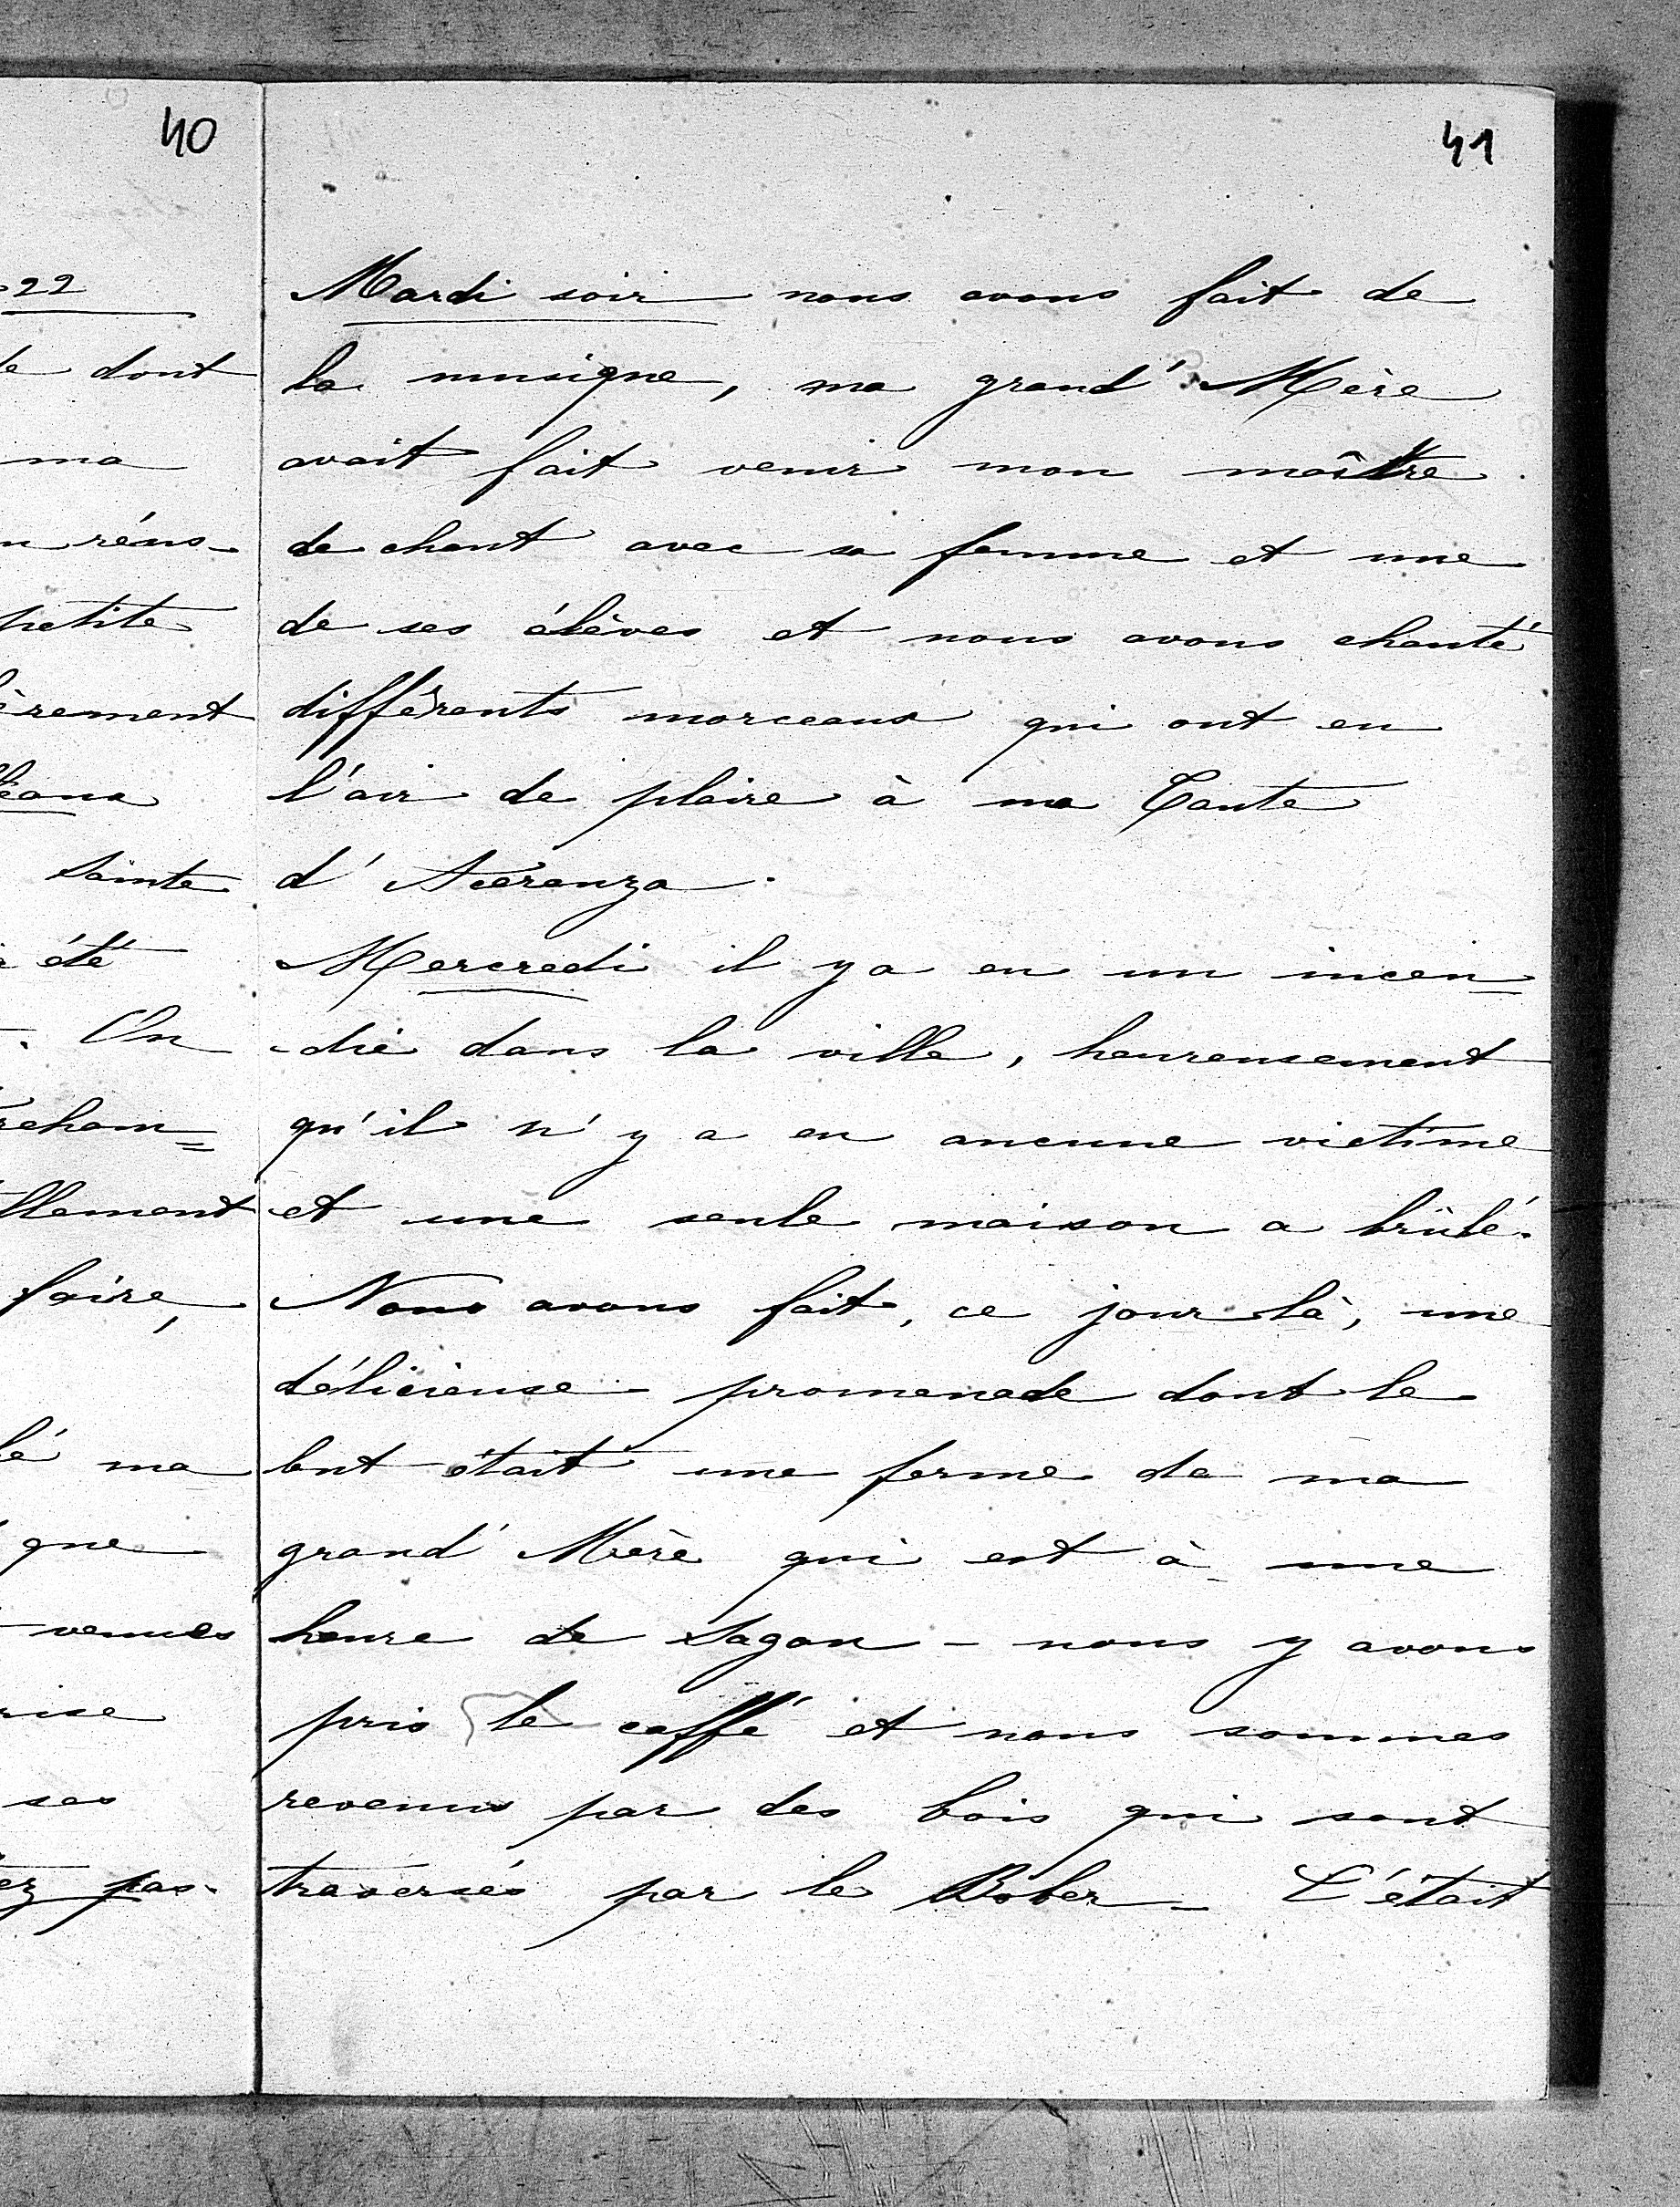 40
22
dont
ma
petite
Sainte
été
On
faire,
ma
que
venues
ses
pas.
41
Mardi soir nous avons fait de
la musique, ma grand'Mère
avait fait venir mon maître
de chant avec sa femme et une
de ses élèves et nous avons chanté
différents morceaux qui ont eu
l'air de plaire à ma Tante
d'Acerenza.
Mercredi il y a eu un incen=
-die dans la ville, heureusement
qu'il n'y a eu aucune victime
et une seule maison a brûlé.
Nous avons fait, ce jour là, une
délicieuse promenade dont le
but était une ferme de ma
grand'Mère qui est à une
heure de Sagan - nous y avons
pris le caffé et nous sommes
revenus par des bois qui sont
traversés par le Bober - C'était